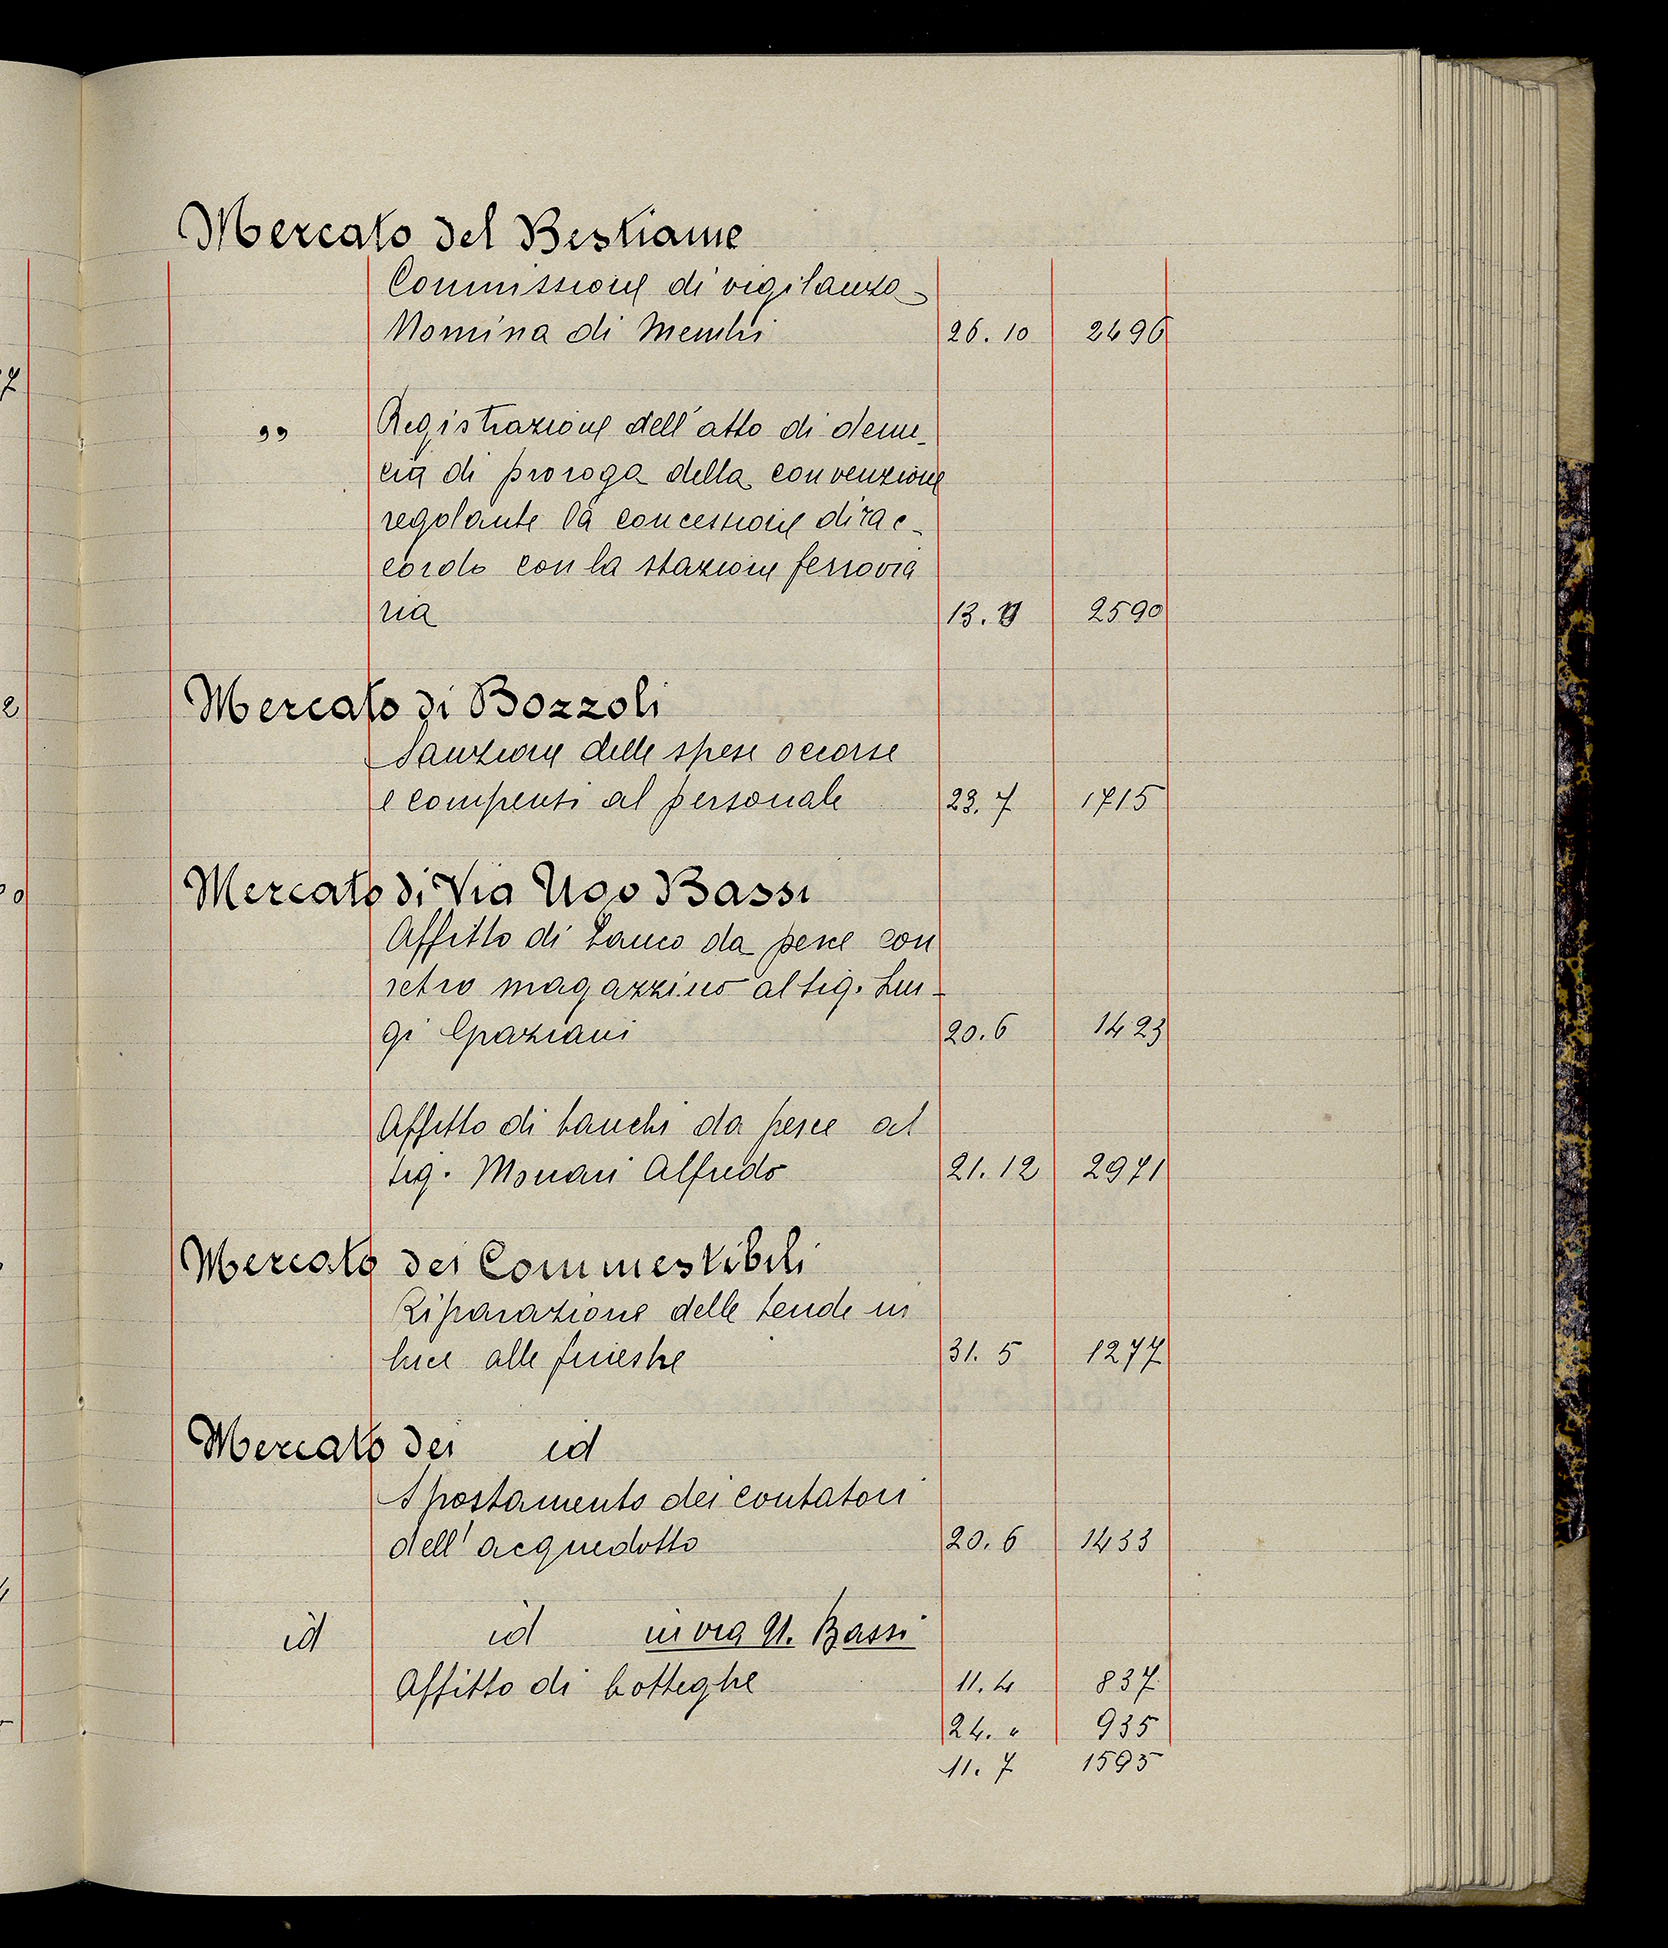 Mercato del Bestiame
Commissione di vigilanza
Nomina di Membri 26. 10 2496
" Registrazione dell'atto di denun-
cia di proroga della convenzione
regolante la concessione di rac-
cordo con la stazione ferrovia
ria 13. 2590
Mercato di Bozzoli
Sanzione delle spese occorse
e compensi al personale 23. 7 1715
Mercato di Via Ugo Bassi
Affitto di banco da pesce con
retro magazzino al sig. Lui-
gi Graziani 20. 6 1423
Affitto di banchi da pesce al
sig. Monari Alfredo 21. 12 2971
Mercato dei Commestibili
Riparazione delle tende in
luce alle finestre 31. 5 1277
Mercato dei id
Spostamento dei contatori
dell'acquedotto 20. 6 1433
id id in via U. Bassi
Affitto di botteghe 11. 4 837
24. " 935
11. 7 1595